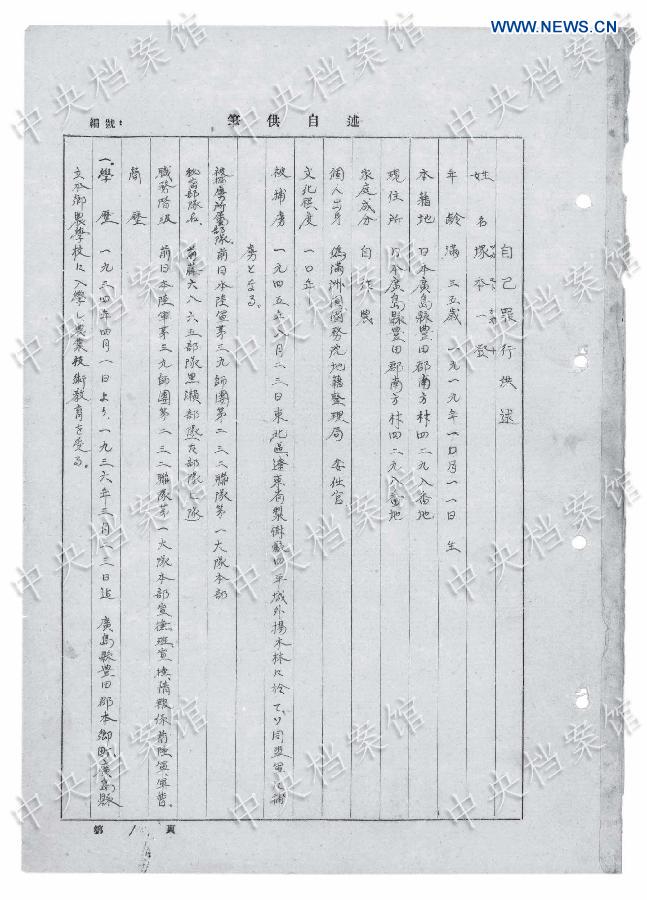 WWW.NEWS.CN
編號：
筆供自述
自己罪行供述
姓名 塚本一登
年齡 満三五歳 一九一九年一〇月一一日生
本籍地 日本廣島縣豊田郡南方村四二九八番地
現住所 日本廣島縣豊田郡南方村四二九八番地
家庭成分 自作農
個人出身 偽満洲国國務院地籍整理局 委任官
文化程度 一〇年
被捕虜 一九四五年八月二三日東北區遼東省 四平城外揚木林に於て 同盟軍に捕
虜となる。
部隊 前日本陸軍第三九師團第二三二聯隊第一大隊本部
部隊名 藤六八六五部隊黒瀬部隊 部隊
職務階級 前日本陸軍第三九師團第二三二聯隊第一大隊本部宣撫班宣撫、情報係前陸軍軍曹。
簡歷
一、學歷 一九三四年四月一日より、一九三六年三月一三日迄 廣島縣豊田郡本郷町、廣島縣
立本郷農學校に入學し農業技術教育を受る。
第1頁
中央档案馆